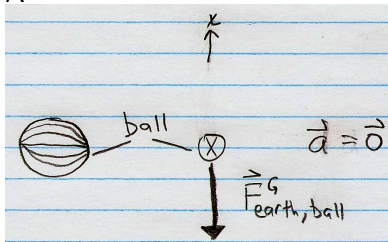 x
ball
⊗
a⃗ = 0⃗
F⃗ᴳ earth, ball